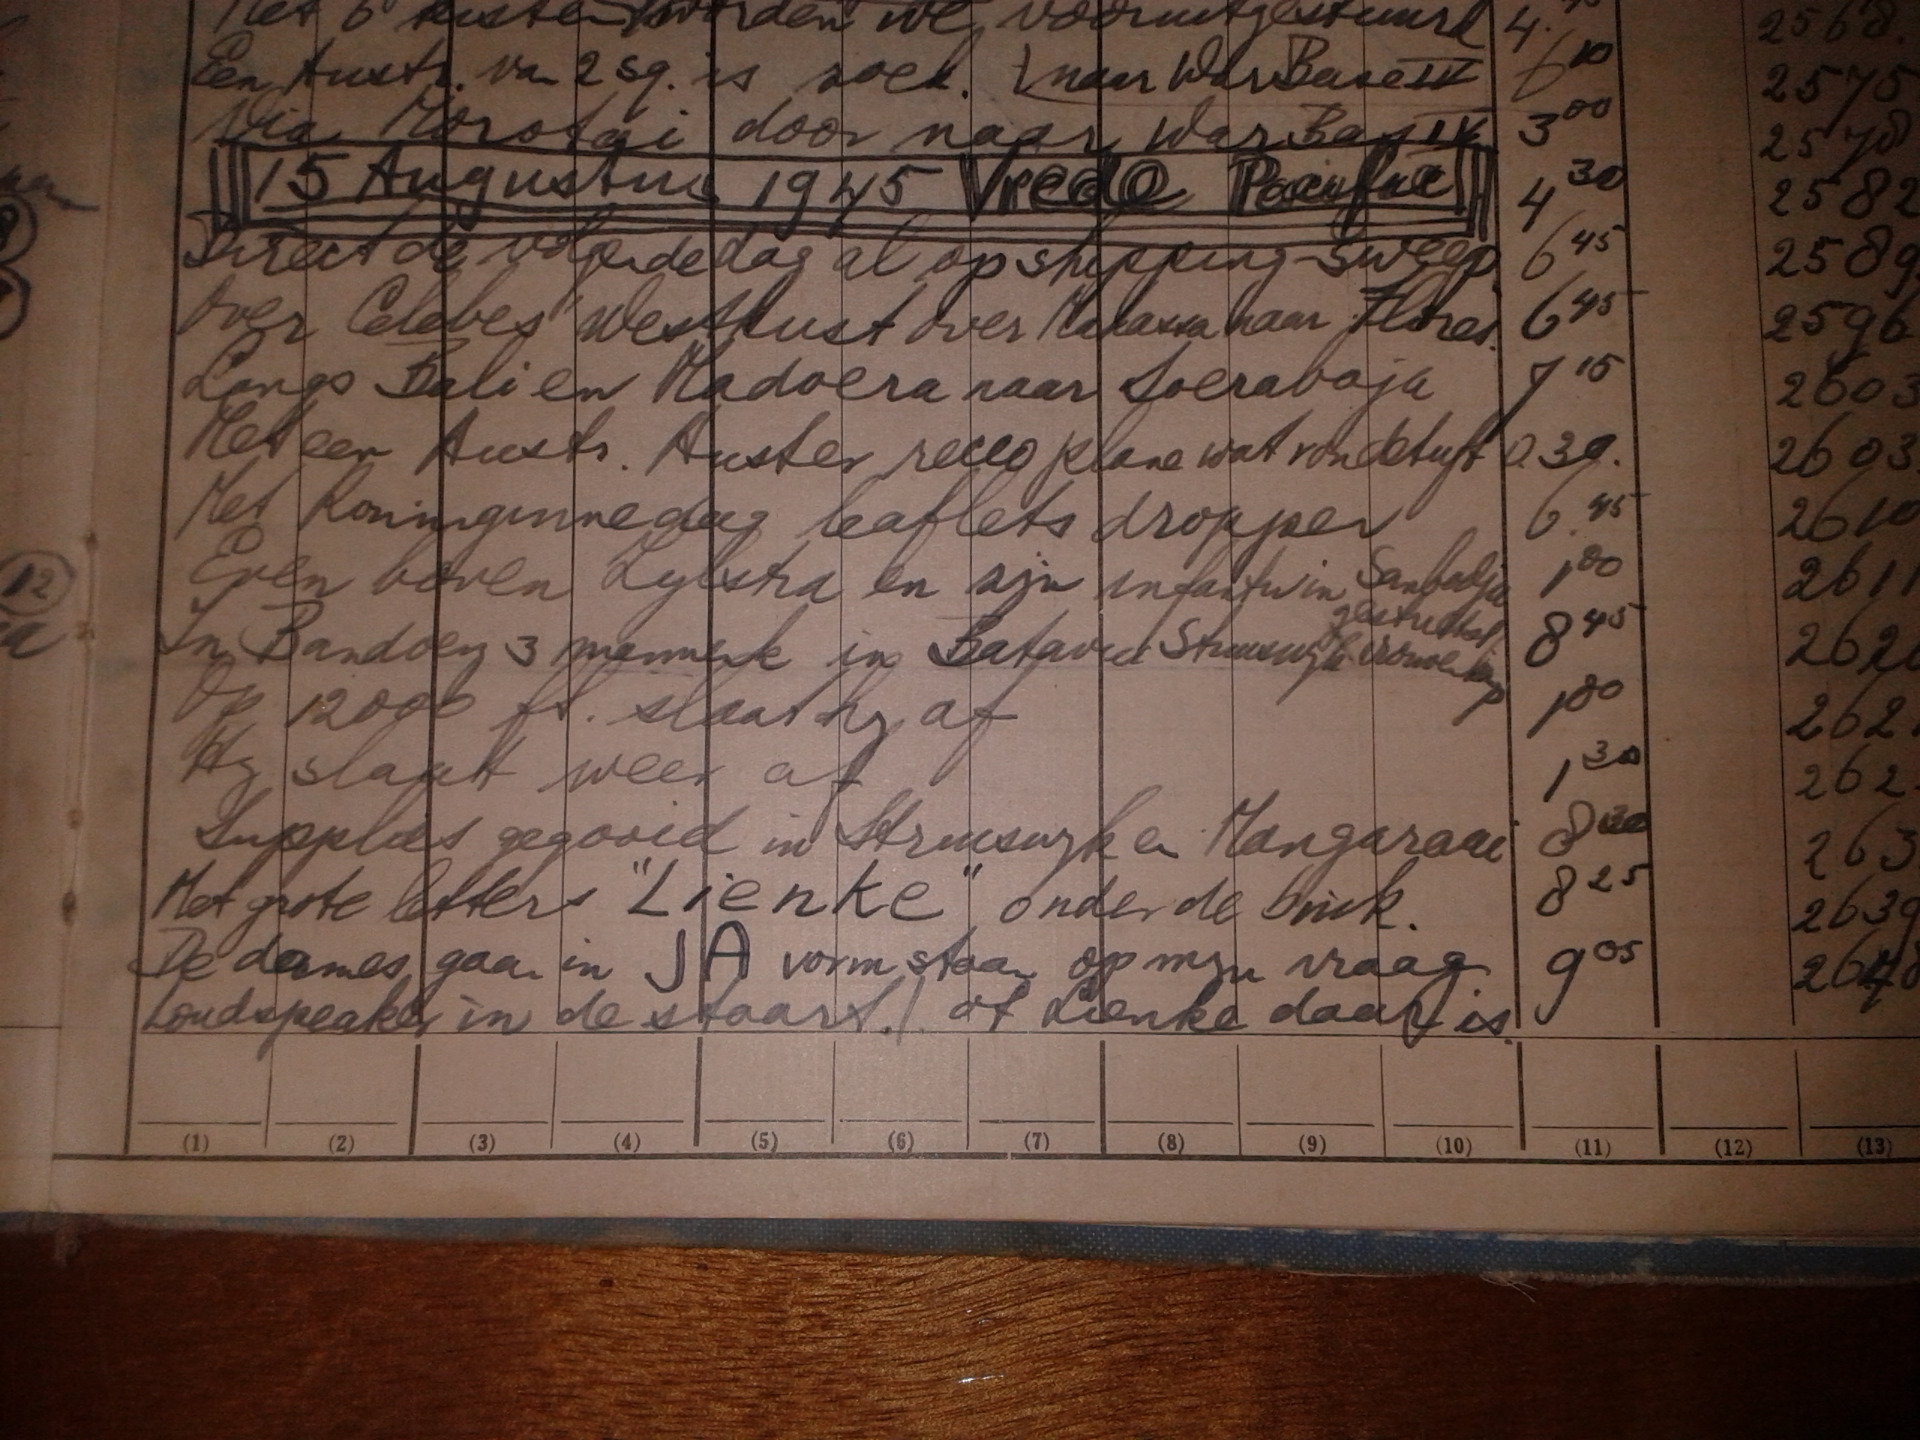 Met 6 kisten worden we vooruitgestuurd 4.45 2568.
Een Austr. van 2 sq. is zoek. naar WarBase IV 6 10 2575
Via Morotai door naar WarBase IV 3 00 2578
15 Augustus 1945 Vrede Pacific 4 30 2582
Direct de volgende dag al op shipping-sweep 6 45 2589
Over Celebes Westkust over Makassar naar Flores. 6 45 2596
Langs Bali en Madoera naar Soerabaja 7 15 2603
Met een Austr. Auster recco plane wat rondetuft 0.30. 2603.
Met Koninginnedag leaflets droppen 6.45 2610
Even boven Zylstra en zijn infantwin Sanbadja 1 00 2611
gestruttel
In Bandoeng 3 mannenk in Batavia Struiswyk vrouwenkamp 8 45 2620
Op 12000 ft. slaat hy af 1 00 262
Hy slaat weer af 1 30 262
Supplies gegooid in Struiswyk en Mangaraai 8 20 263
Met grote letters "Lienke" onder de buik. 8 25 2639
De dames gaan in JA vorm staan op myn vraag 9 05 2648
Loudspeaker in de staart.! of Lienke daar is.
12
(1) (2) (3) (4) (5) (6) (7) (8) (9) (10) (11) (12) (13)